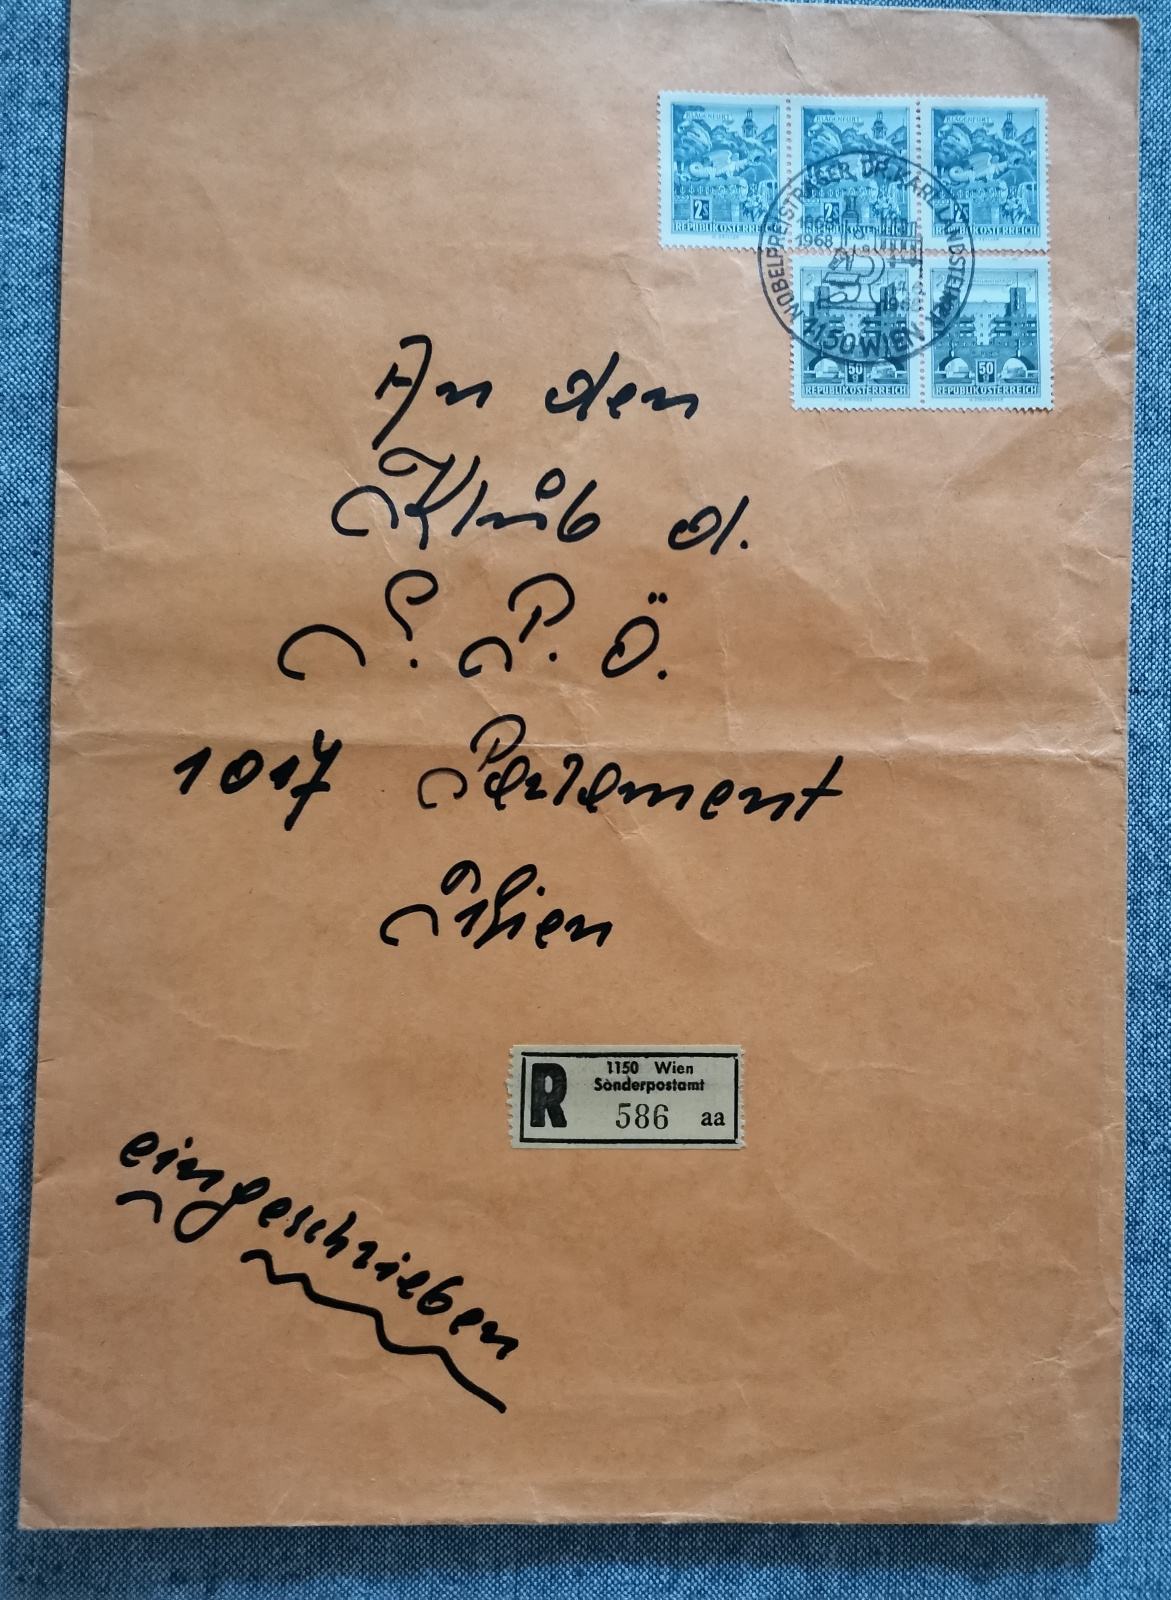 KLAGENFURT KLAGENFURT KLAGENFURT
2S 2S 2S
REPUBLIK ÖSTERREICH REPUBLIK ÖSTERREICH REPUBLIK ÖSTERREICH
NOBELPREISTRÄGER DR. KARL LANDSTEINER
1868
1968
1150 WIEN
50 g 50 g
REPUBLIK ÖSTERREICH REPUBLIK ÖSTERREICH
An den
Klub d.
S. P. Ö.
1017 Parlament
Wien
R 1150 Wien
Sonderpostamt
586 aa
eingeschrieben